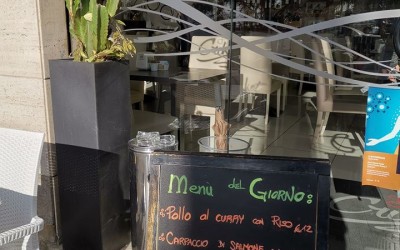 Menù del GIORNO:
Pollo al curry con Riso €12
CARPACCIO di SALMONE